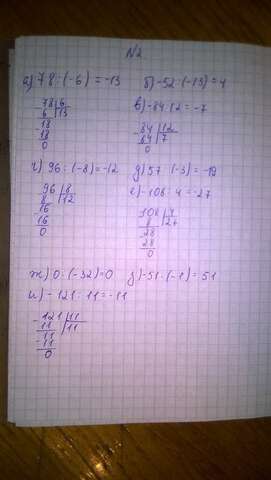 N2
а) 78 : (-6) = -13 б) -52 : (-13) = 4
-78|6
6|13
18
18
0
в) -84 : 12 = -7
-84|12
84|7
0
г) 96 : (-8) = -12 д) 57 : (-3) = -19
96|8
8|12
-16
16
0
е) -108 : 4 = -27
108|4
8|27
28
28
0
ж) 0 : (-32) = 0 з) -51 : (-1) = 51
и) -121 : 11 = -11
-121|11
11|11
-11
11
0